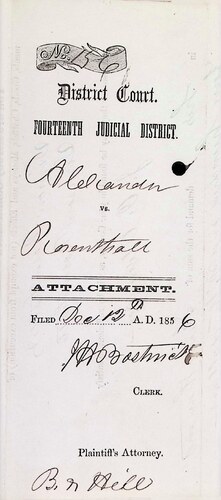 No. 56
District Court.
FOURTEENTH JUDICIAL DISTRICT.
Alexander
vs.
Rosenthall
ATTACHMENT.
FILED Dec 12th A. D. 1856
J H Bostwick
CLERK.
Plaintiff's Attorney.
B. N Hill